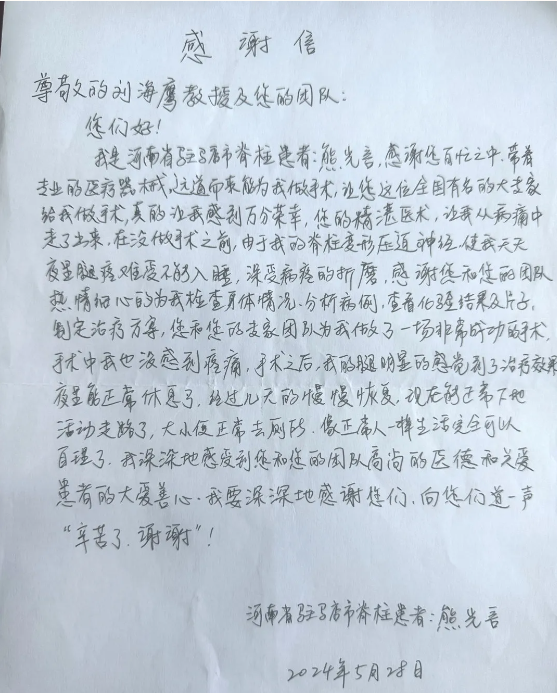 感谢信
尊敬的刘海鹰教授及您的团队:
您们好!
我是河南省驻马店市脊柱患者:熊光吾,感谢您百忙之中,带着
专业的医疗器械,远道而来能为我做手术,让您这位全国有名的大专家
给我做手术,真的让我感到万分荣幸,您的精湛医术,让我从病痛中
走了出来,在没做手术之前,由于我的脊柱变形压迫神经,使我天天
夜里腿疼难受不能入睡,深受病疼的折磨,感谢您和您的团队
热情细心的为我检查身体情况、分析病例,查看化验结果及片子,
制定治疗方案,您和您的专家团队为我做了一场非常成功的手术,
手术中我也没感到疼痛,手术之后,我的腿明显的感觉到了治疗效果
夜里能正常休息了,经过几天的慢慢恢复,现在能正常下地
活动走路了,大小便正常去厕所,像正常人一样生活完全可以
自理了,我深深地感受到您和您的团队高尚的医德和关爱
患者的大爱善心,我要深深地感谢您们,向您们道一声
“辛苦了,谢谢”!
河南省驻马店市脊柱患者:熊光吾
2024年5月28日